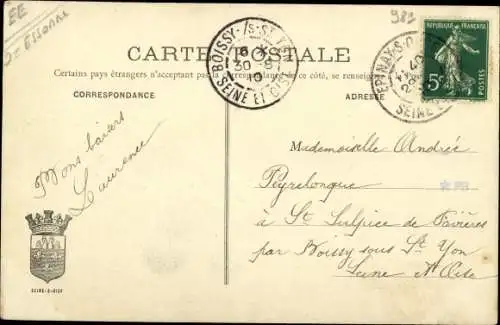 EE
= Essonne
983
CARTE POSTALE
Certains pays étrangers n'acceptant pas la correspondance de ce côté, se renseigner
CORRESPONDANCE
ADRESSE
BOISSY-/S-ST YON
6
30 -9
SEINE ET OISE
EPINAY-S-O
SEINE
REPUBLIQUE FRANÇAISE
5c
POSTES
Mons baisers
Laurence
Mademoiselle Andrée
Peyrelongue
à St Sulpice de Favières
par Boissy sous St Yon
Seine et Oise
SEINE-&-OISE